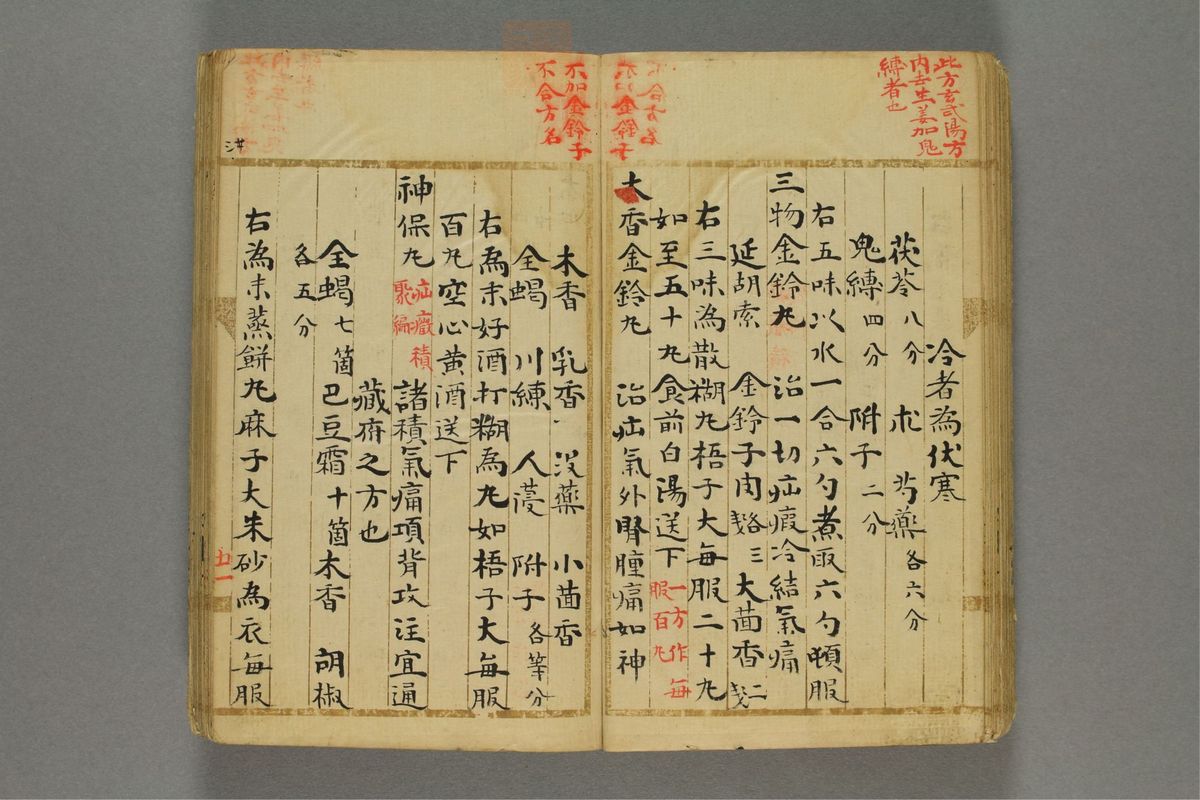 此方玄武湯方
内去生姜加鬼
縛者也
冷者為伏寒
茯苓八分 朮 芍藥各六分
鬼縛四分 附子二分
右五味以水一合六勺煮取六勺頓服
三物金鈴丸 治一切疝瘕冷結氣痛
延胡索 金鈴子肉各三 大茴香二
右三味為散糊丸梧子大每服二十丸
如至五十丸食前白湯送下 一方作每
服百丸
木香金鈴丸 治疝氣外腎腫痛如神
不加金鈴子
不合方名
木香 乳香 没藥 小茴香
全蝎 川練 人薓 附子各等分
右為末好酒打糊為丸如梧子大每服
百丸空心黄酒送下
神保丸 疝癥積
聚編
諸積氣痛項背攻注宜通
藏府之方也
全蝎七箇 巴豆霜十箇 木香 胡椒
各五分
右為末蒸餅丸麻子大朱砂為衣每服
五一